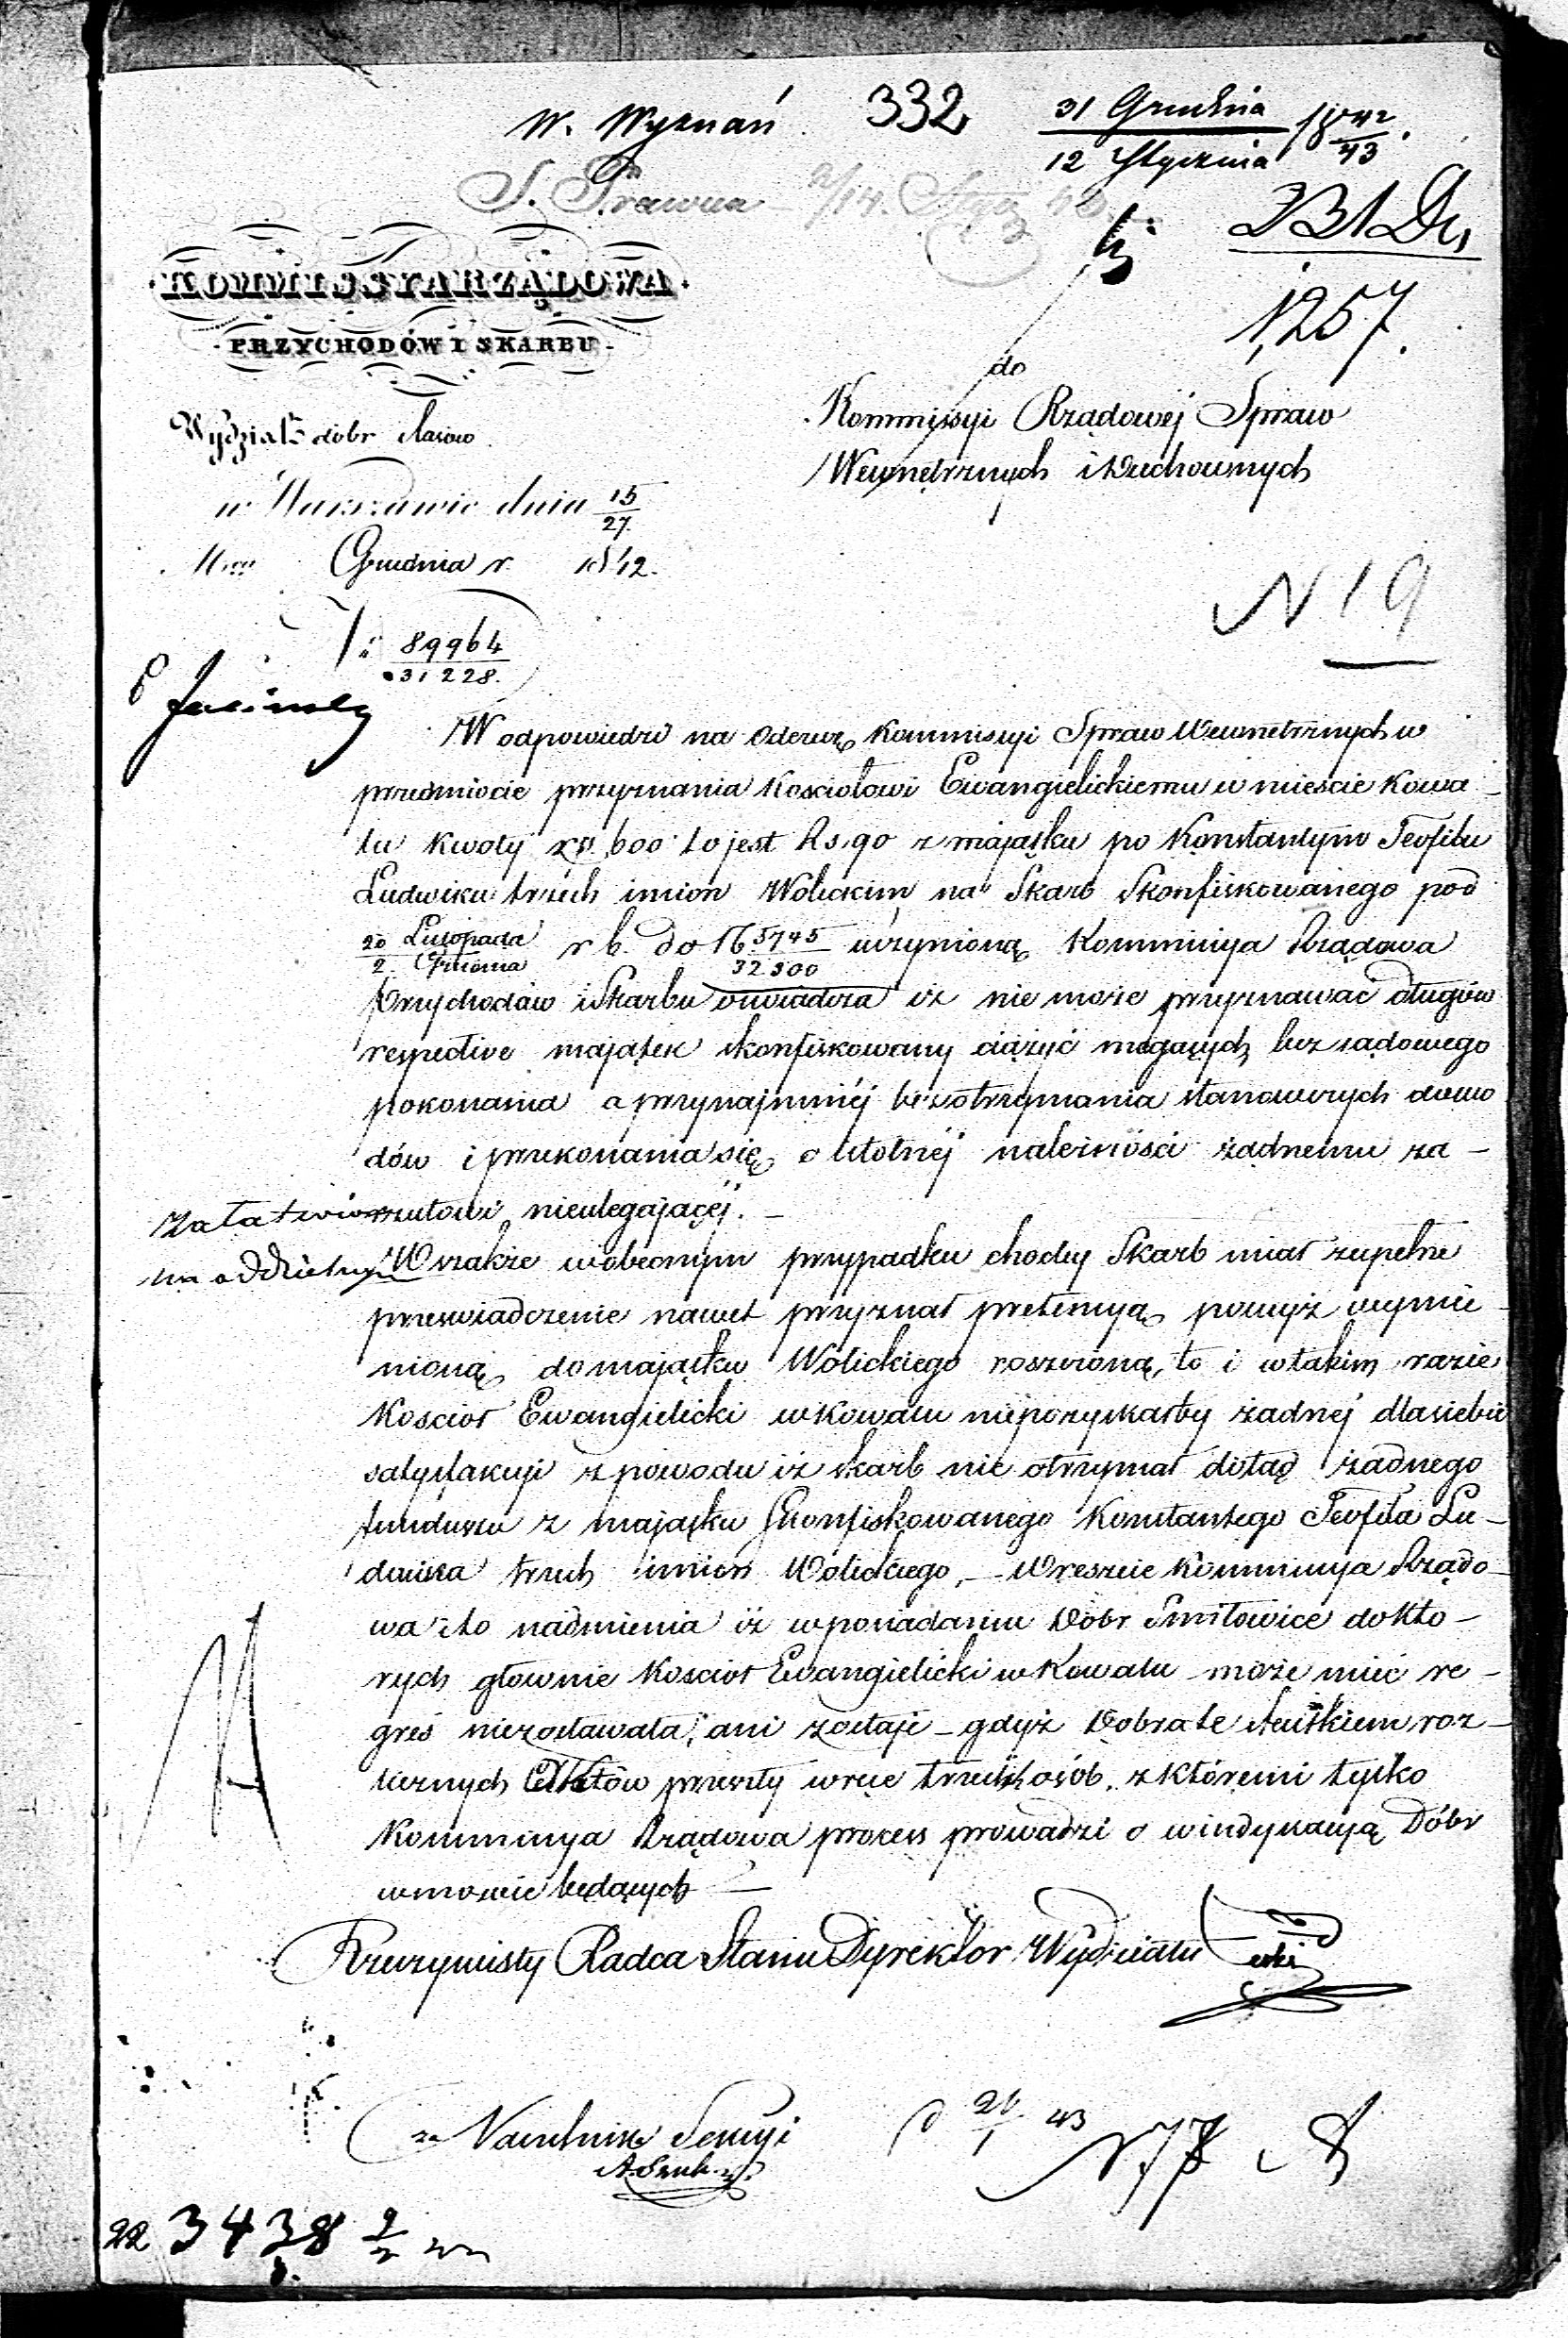 W. Wyznań 332 31 Grudnia 1842
12 Stycznia 43
S. Prawna 2/14. Stycz 43
331
1,257.
KOMMISSYA RZĄDOWA
PRZYCHODÓW I SKARBU
do
Kommissyi Rządowej Spraw
Wewnętrznych i Duchownych
Wydział dobr i lasow
w Warszawie dnia 15
27.
Grudnia r. 1842.
N 19
89964
31228.
W odpowiedzi na Odezwę Kommissyi Spraw Wewnetrznych w
przedmiocie przyznania Kosciołowi Ewangielickiemu w miescie Kowa-
lu Kwoty zp. 600 to jest Rs. 90 z majątku po Konstantym Teofilu
Ludwiku trzech imion Wolickim na Skarb Skonfiskowanego pod
20 Listopada
2 Grudnia r b. do 16 5745
32300 uczynioną Kommissya Rządowa
Przychodów i Skarbu oswiadcza iż nie może przyznawać długów
respective majątek skonfiskowany ciążyć mogących bez sądowego
pokonania a przynajmniéj bez otrzymania stanowczych dowo
dów i przekonania się o istotnéj należności żadnemu za-
rzutowi nieulegającéj.
Załatwiono
na oddzielnym
Wszakże w obecnym przypadku choćby Skarb miał zupełne
przeswiadczenie nawet przyznał pretensyą powyż wymie-
nioną do majątku Wolickiego roszczoną, to i w takim razie
Kosciół Ewangielicki w Kowalu niepozyskałby żadnej dla siebie
satysfakcyi z powodu iż skarb nie otrzymał dotąd żadnego
funduszu z majątku Skonfiskowanego Konstantego Teofila Lu-
dwika trzech imion Wolickiego, - Wreszcie Kommissya Rządo-
wa i to nadmienia iż w posiadaniu Dóbr Smiłowice do któ-
rych głownie Kosciół Ewangielicki w Kowalu może mieć re-
gres niezostawała, ani zostaje - gdyż Dobra te skutkiem roz-
licznych Aktów przeszły w ręce trzecich osób, z któremi tylko
Kommissya Rządowa process prowadzi o windykacyą Dóbr
w mowie będących
Rzeczywisty Radca Stanu Dyrektor Wydziału
za Naczelnika Sekcyi
21
1 43
N 78
22 3438 9
2